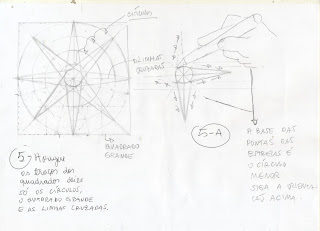 CÍRCULOS
LINHAS
CRUZADAS
QUADRADO
GRANDE
5- Apague
os traços dos
quadrados deixe
só os CÍRCULOS,
O QUADRADO GRANDE
E AS LINHAS CRUZADAS.
5-A
A BASE DAS
PONTAS DAS
ESTRELAS É
O CÍRCULO
MENOR
SIGA A
ACIMA.